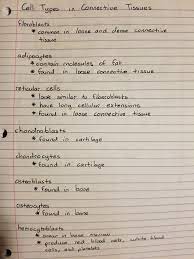 Cell Types in Connective Tissues
fibroblasts
* common in loose and dense connective
tissue
adipocytes
* contain molecules of fat
* found in loose connective tissue
reticular cells
* look similar to fibroblasts
* have long cellular extensions
* found in loose connective tissue
chondroblasts
* found in cartilage
chondrocytes
* found in cartilage
osteoblasts
* found in bone
osteocytes
* found in bone
hemocytoblasts
* occur in bone marrow
* produce red blood cells, white blood
cells, and platelets